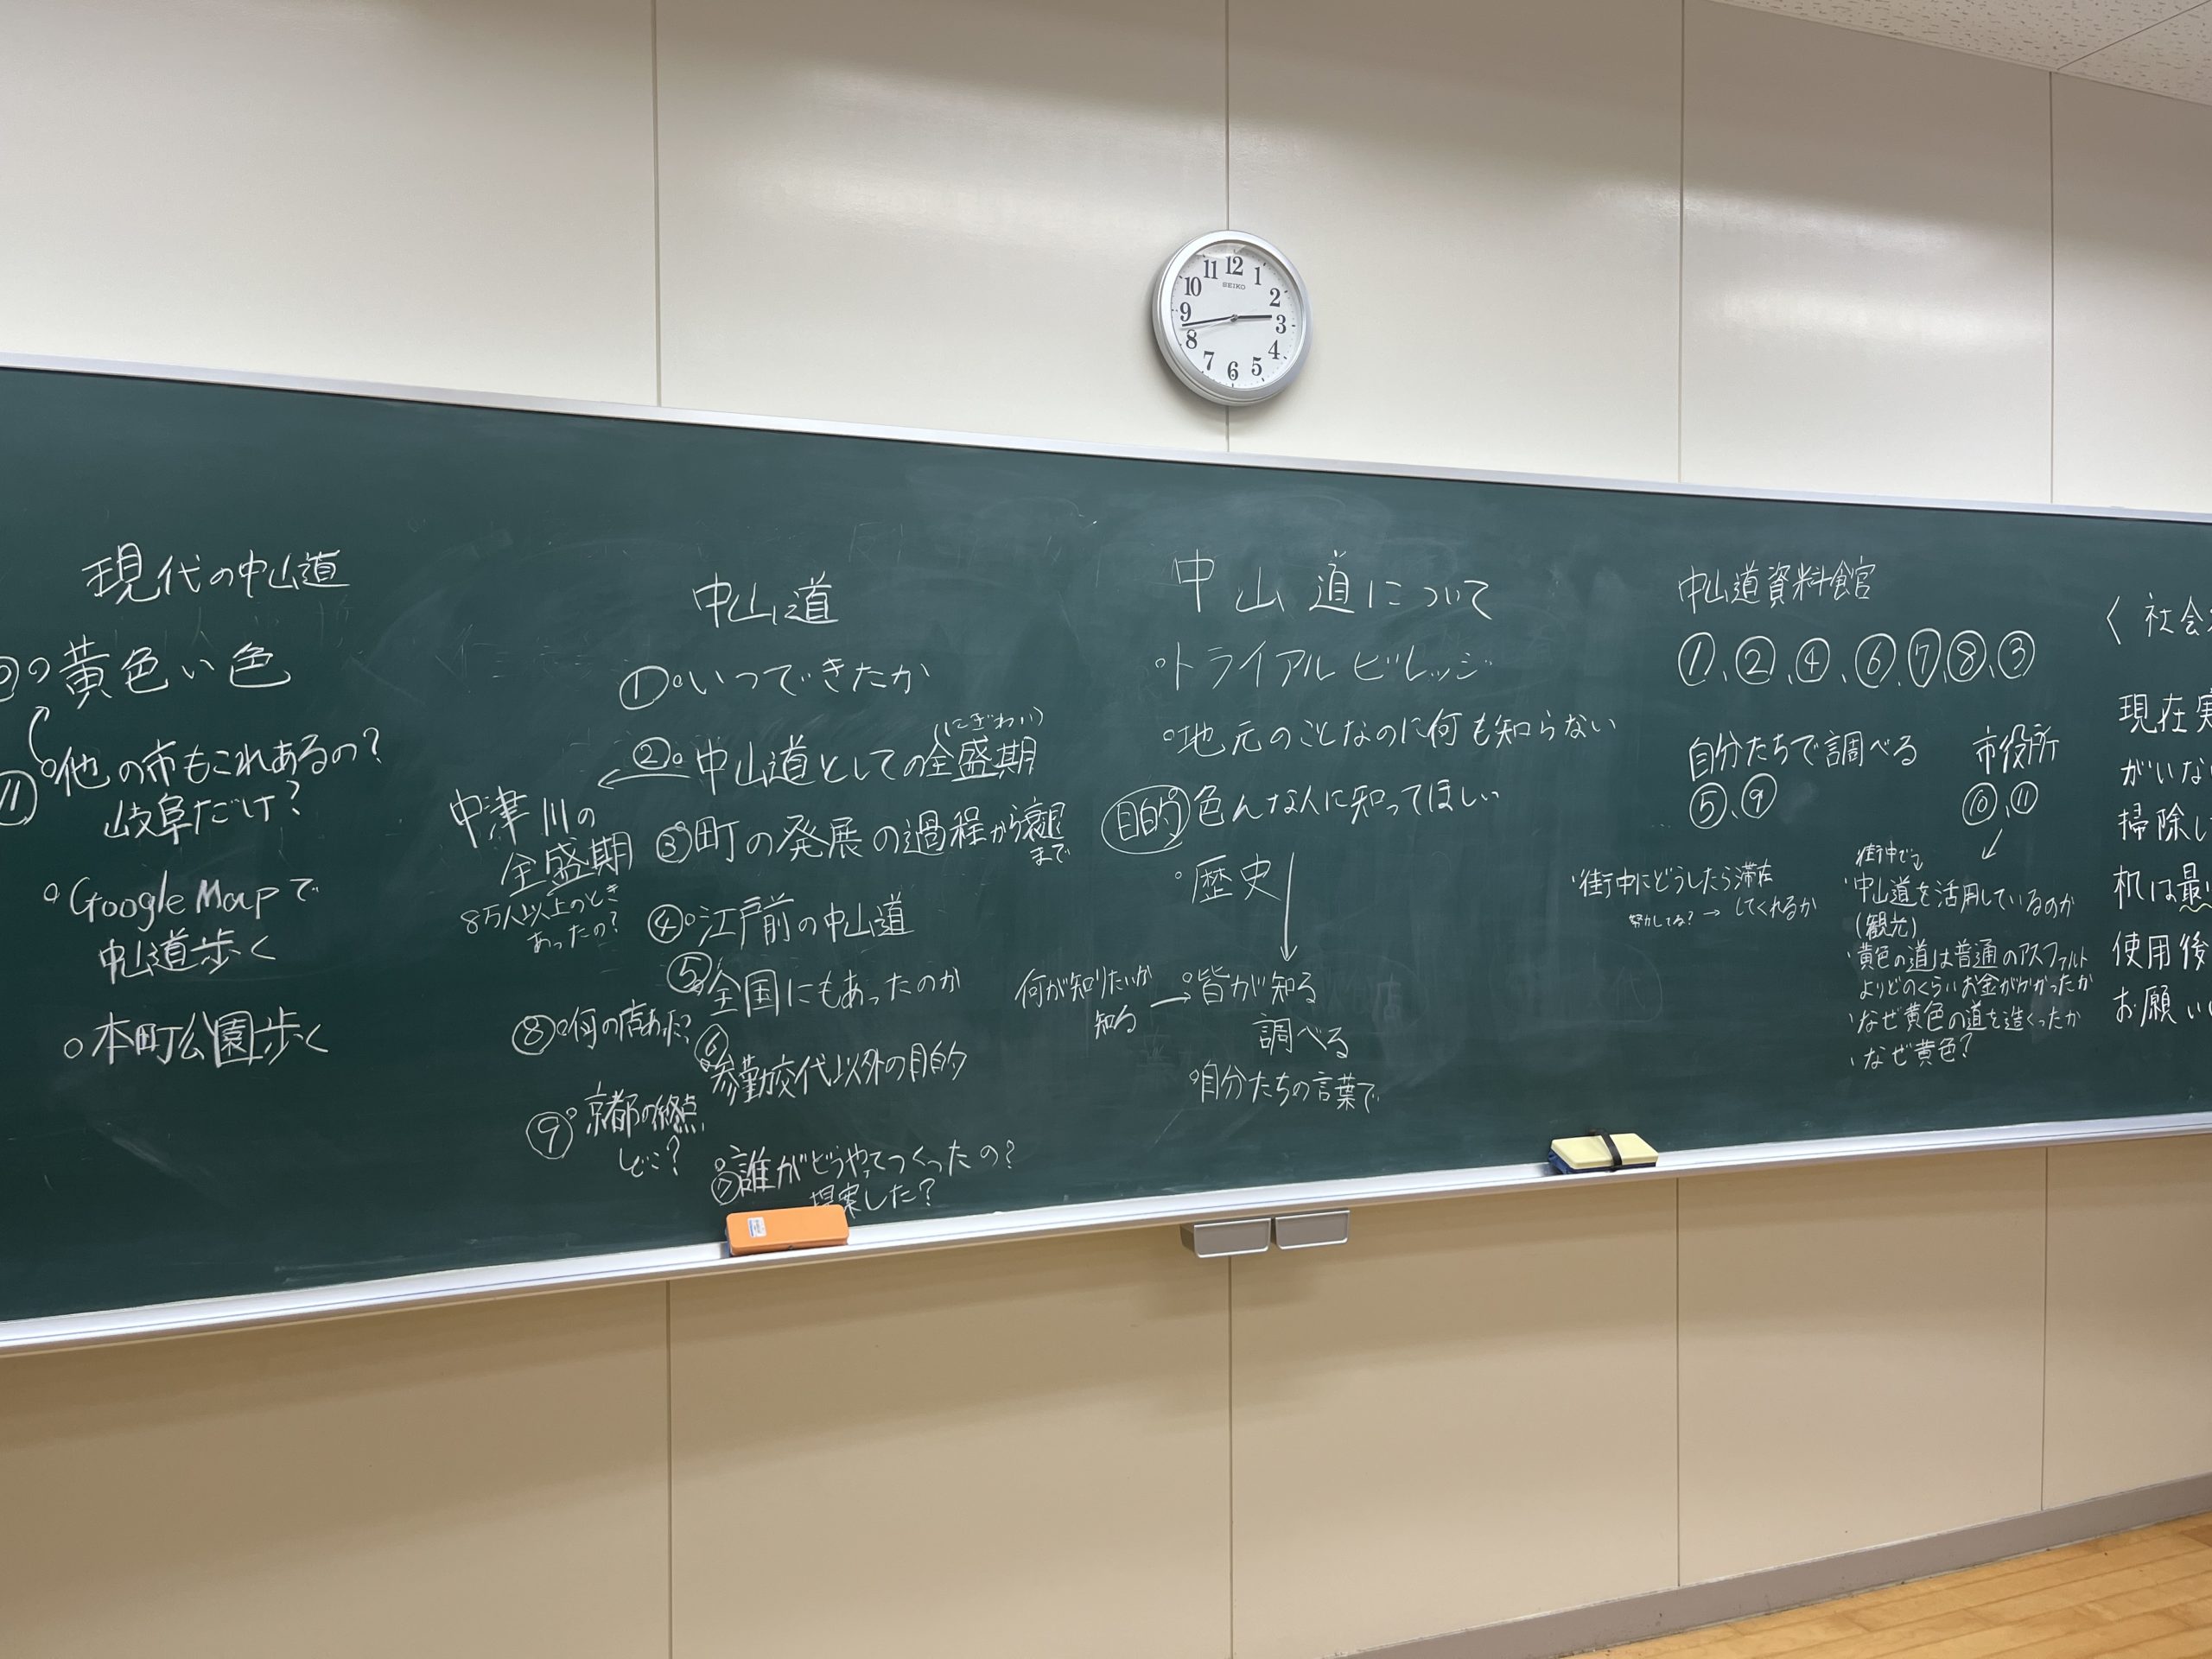 12
1
2
3
4
5
6
7
8
9
10
11
SEIKO
現代の中山道
○黄色い色
⑪○他の市もこれあるの?
岐阜だけ?
○Google Mapで
中山道歩く
○本町公園歩く
中山道
①○いつできたか
(にぎわい)
②○中山道としての全盛期
中津川の
全盛期
8万人以上のとき
あったの?
③○町の発展の過程から衰退
まで
④○江戸前の中山道
⑤○全国にもあったのか
⑥○参勤交代以外の目的
⑦○誰がどうやってつくったの?
提案した?
⑧○何の店あった?
⑨○京都の終点
どこ?
中山道について
○トライアルビレッジ
○地元のことなのに何も知らない
目的○色んな人に知ってほしい
○歴史
何が知りたいか
知る
→○皆が知る
調べる
○自分たちの言葉で
中山道資料館
①、②、④、⑥、⑦、⑧、③
自分たちで調べる
⑤、⑨
市役所
⑩、⑪
・街中にどうしたら滞在
努力してる?→してくれるか
街中で
・中山道を活用しているのか
(観光)
・黄色の道は普通のアスファルト
よりどのくらいお金がかかったか
・なぜ黄色の道を造ったか
・なぜ黄色?
〈社会
現在実
がいな
掃除し
机は最
使用後
お願い